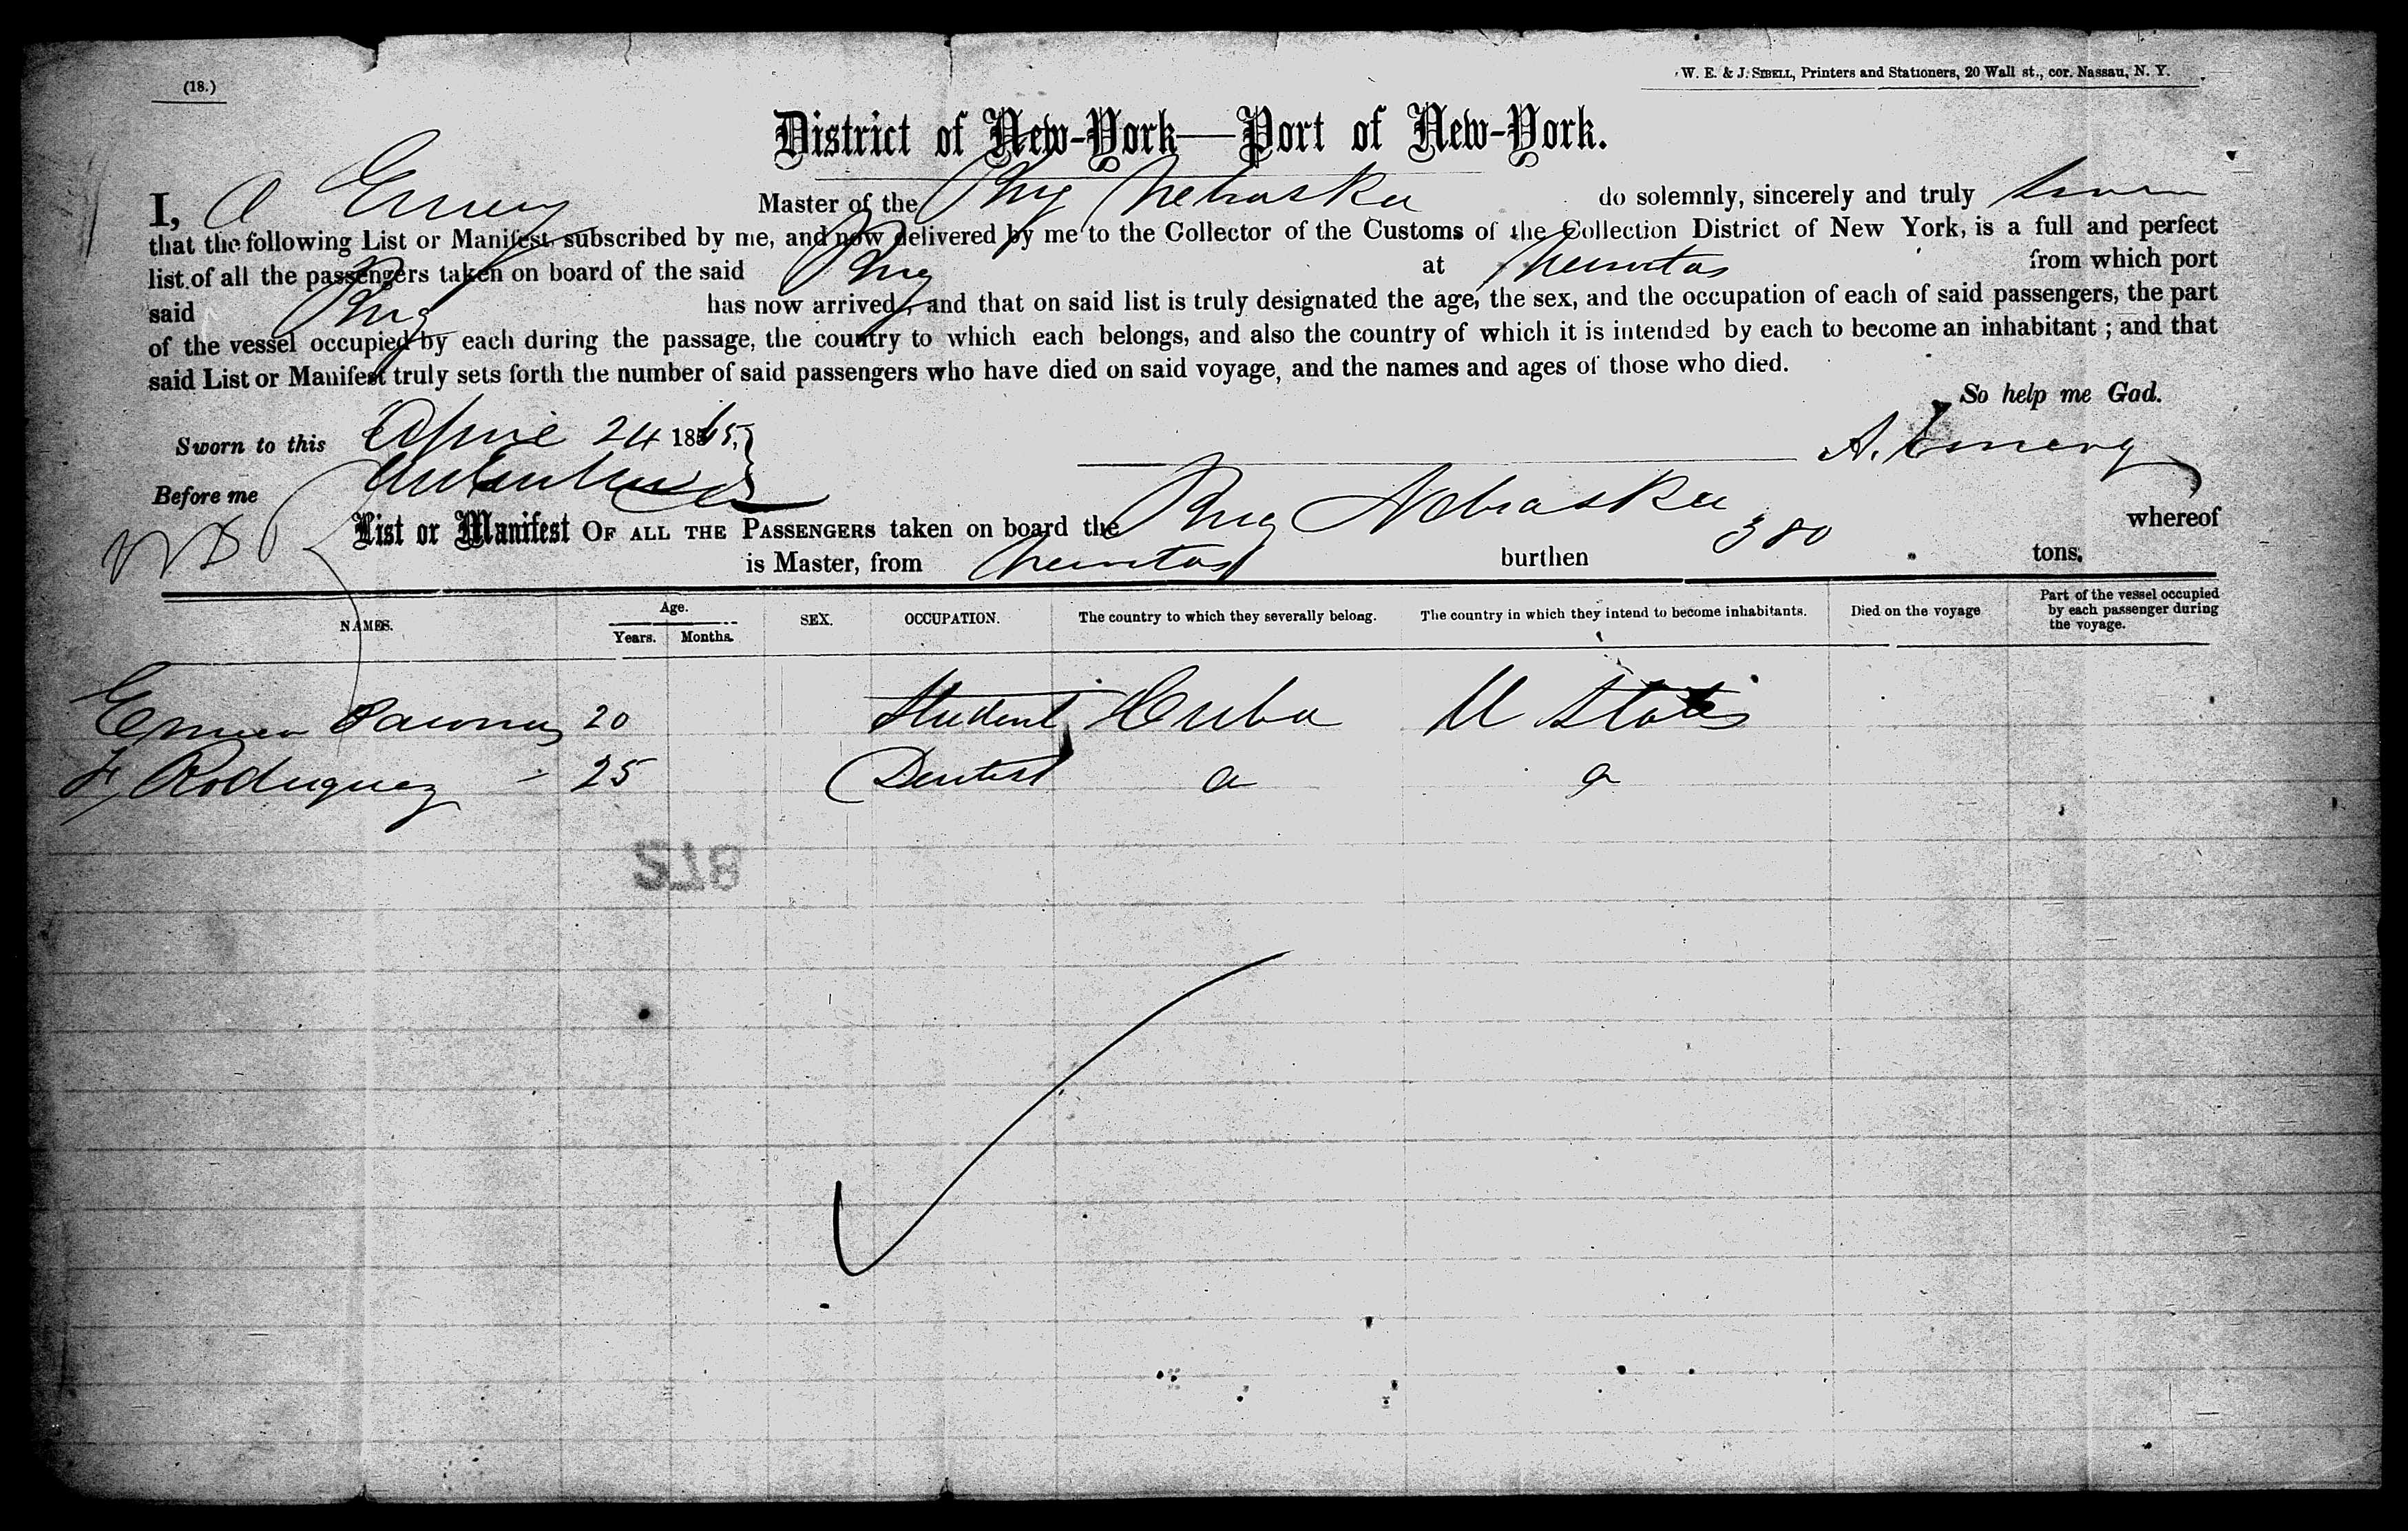 (18.)
W. E. & J. SIBELL, Printers and Stationers, 20 Wall st., cor. Nassau, N. Y.
District of New-York—Port of New-York.
I, A Emery Master of the Brig Nebraska do solemnly, sincerely and truly swear
that the following List or Manifest, subscribed by me, and now delivered by me to the Collector of the Customs of the Collection District of New York, is a full and perfect
list of all the passengers taken on board of the said Brig at Nuevitas from which port
said Brig has now arrived, and that on said list is truly designated the age, the sex, and the occupation of each of said passengers, the part
of the vessel occupied by each during the passage, the country to which each belongs, and also the country of which it is intended by each to become an inhabitant ; and that
said List or Manifest truly sets forth the number of said passengers who have died on said voyage, and the names and ages of those who died.
So help me God.
Sworn to this April 24 1865, A. Emery
Before me
List or Manifest OF ALL THE PASSENGERS taken on board the Brig Nebraska whereof
is Master, from Nuevitas burthen 380 tons.
NAMES. Age. Years. Months. SEX. OCCUPATION. The country to which they severally belong. The country in which they intend to become inhabitants. Died on the voyage Part of the vessel occupied by each passenger during the voyage.
20 Student Cuba U States
F Rodriguez 25 Dentist a a
518